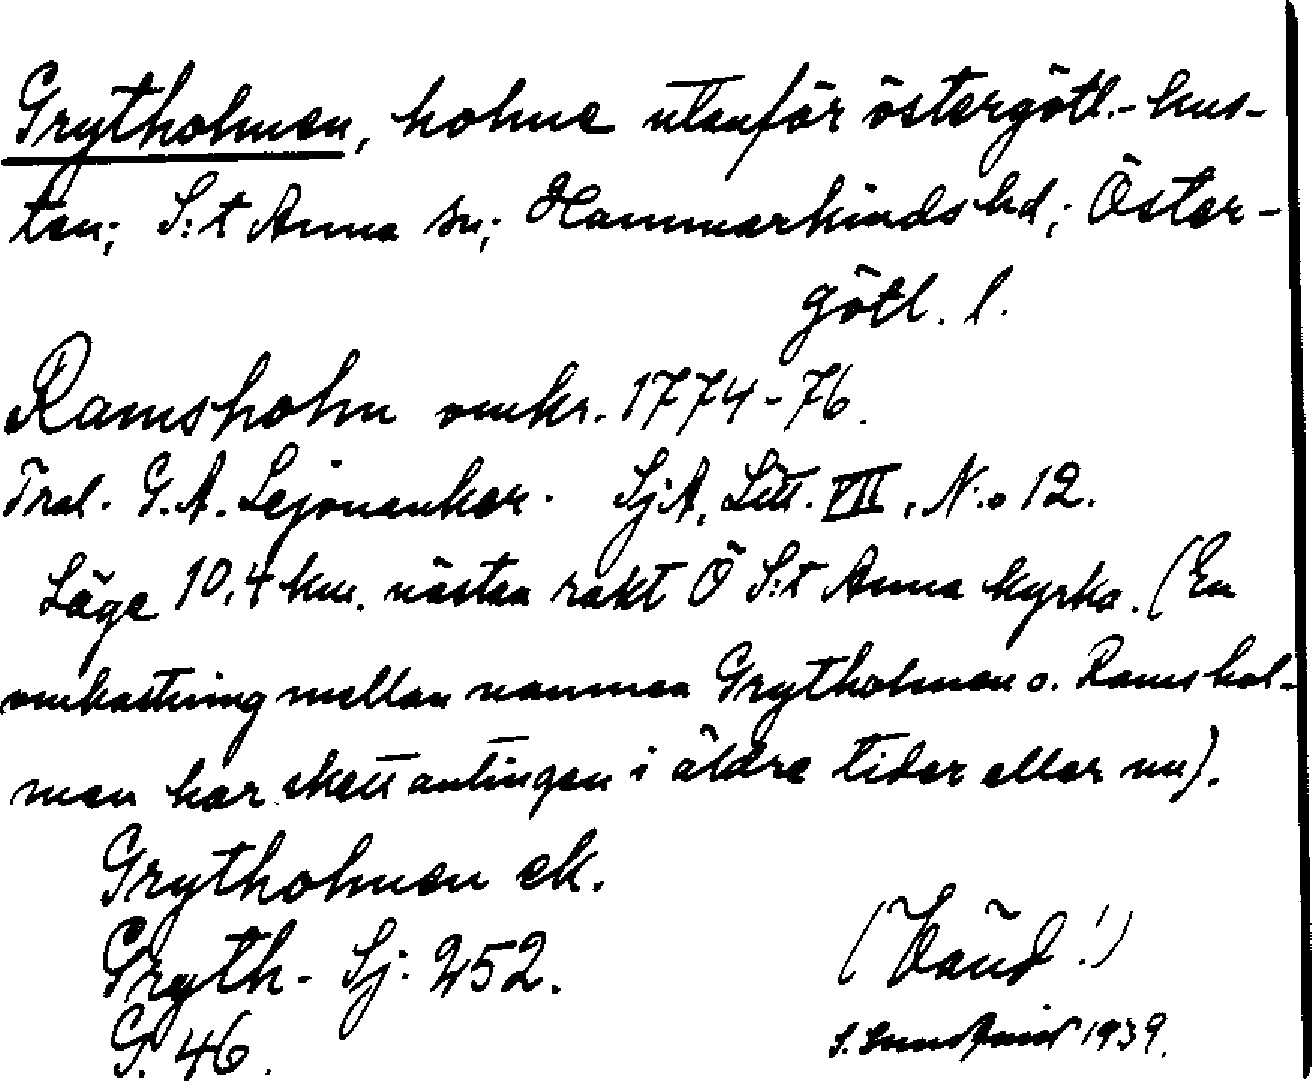 Grytholmen, holme utanför östergötl.-kus-
ten; S:t Anna sn; Hammarkinds hd; Öster-
götl. l.
Ramsholm omkr. 1774-76.
Fral. G. A. Lejonanker. SjA, Litt. VII, N:o 12.
Läge 10,4 km. nästan rakt Ö S:t Anna kyrka. (En
omkastning mellan namnen Grytholmen o. Ramshol-
men har skett antingen i äldre tider eller nu).
Grytholmen ek.
Gryth- Sj: 252.
G. 46.
(Vänd!)
S. 1939.